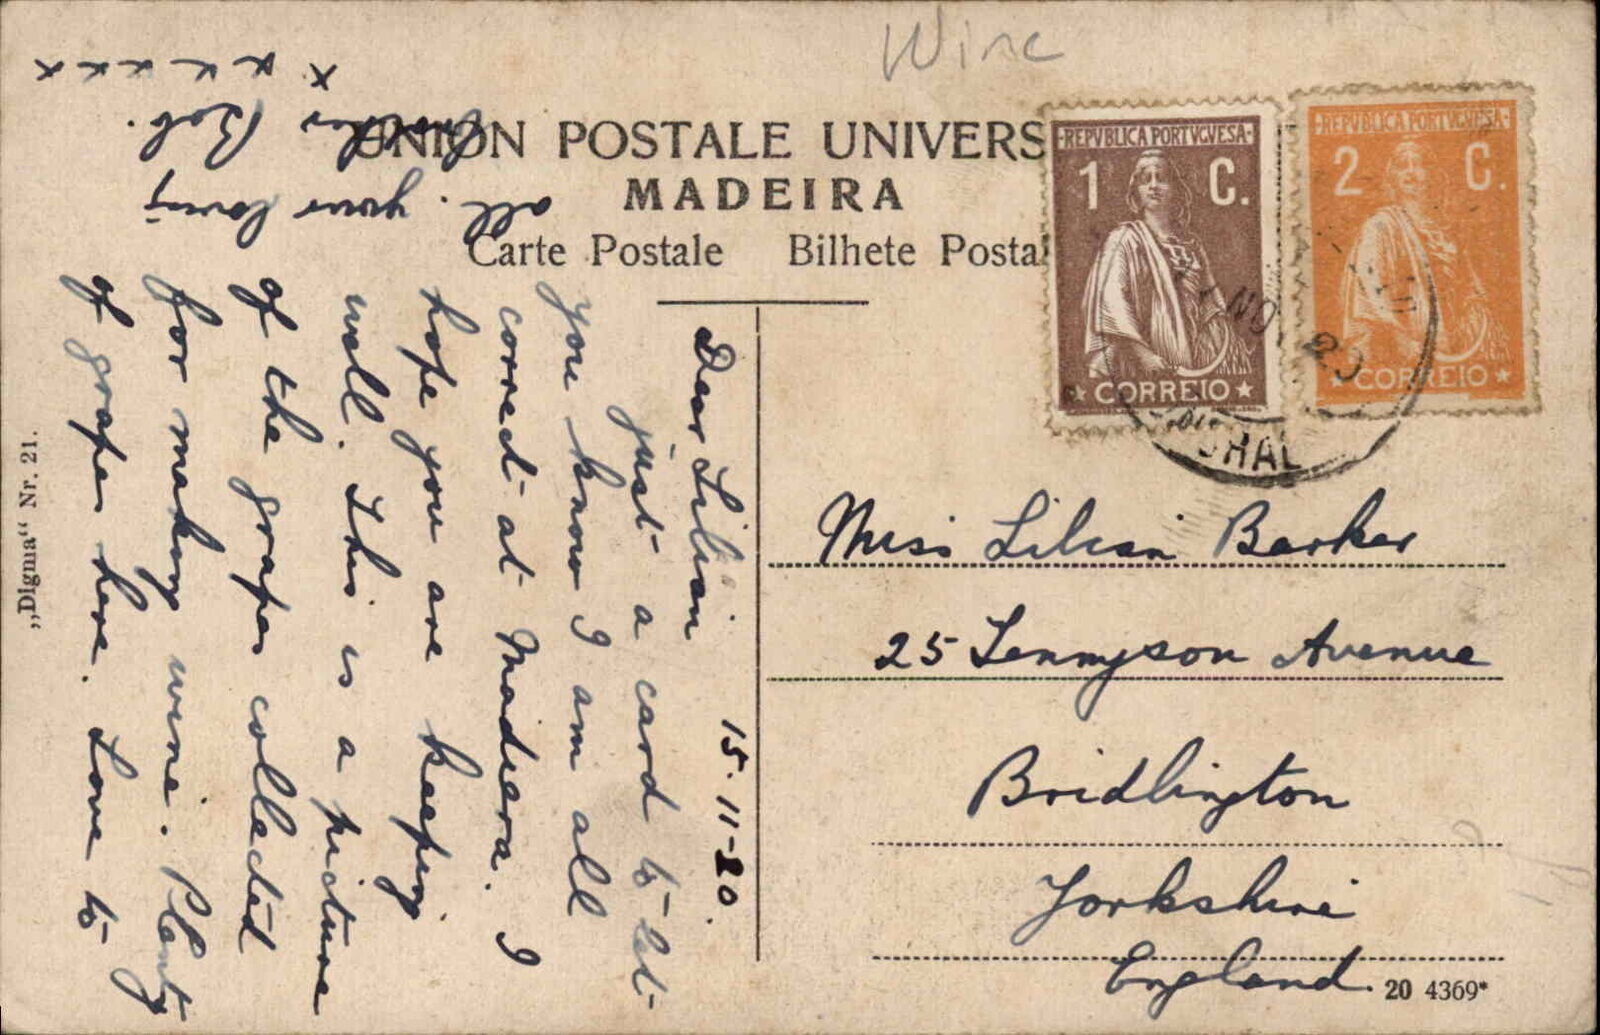 Wine
UNION POSTALE UNIVERS
MADEIRA
Carte Postale Bilhete Postal
REPVBLICA PORTVGVESA
1 C.
CORREIO
REPVBLICA PORTVGVESA
2 C.
CORREIO
NO 20
CHAL
15.11-20.
Dear Lilian
just a card to let
you know I am all
correct at Madiera. I
hope you are keeping
well. This is a picture
of the grapes collected
for making wine. Plenty
of grapes here. Love to
all. your loving
brother Bob.
x x x x x x
x
Miss Lilian Barker
25 Tennyson Avenue
Bridlington
Yorkshire
England.
20 4369*
„Digna“ Nr. 21.